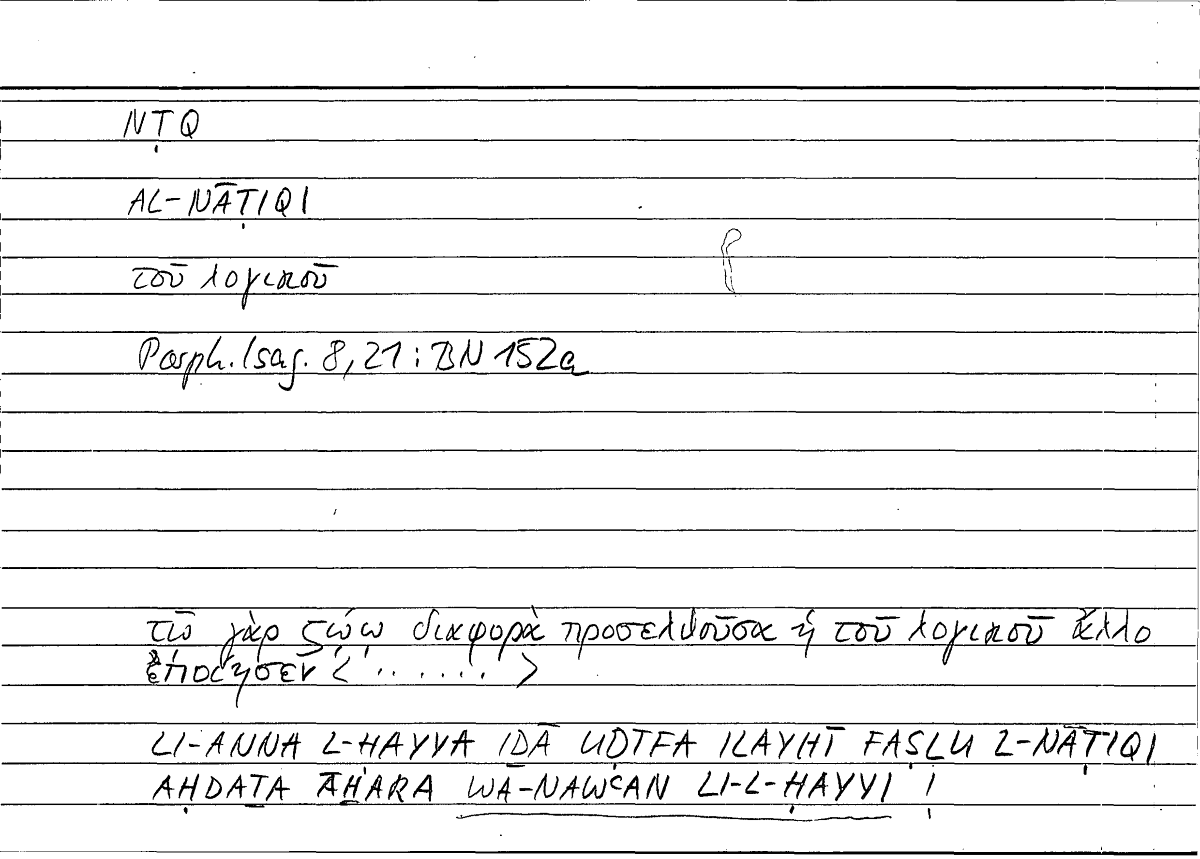 NṬQ
AL-NĀṬIQI
τοῦ λογικοῦ
Porph. Isag. 8,21 : BN 152a
τῷ γὰρ ζῴῳ διαφορὰ προσελθοῦσα ἡ τοῦ λογικοῦ ἄλλο
ἐποίησεν < . . . . . . >
LI-ANNA L-ḤAYYA IḎĀ UḌĪFA ILAYHĪ FAṢLU L-NĀṬIQI
AḤDAṮA ĀḪARA WA-NAWʿAN LI-L-ḤAYYI !